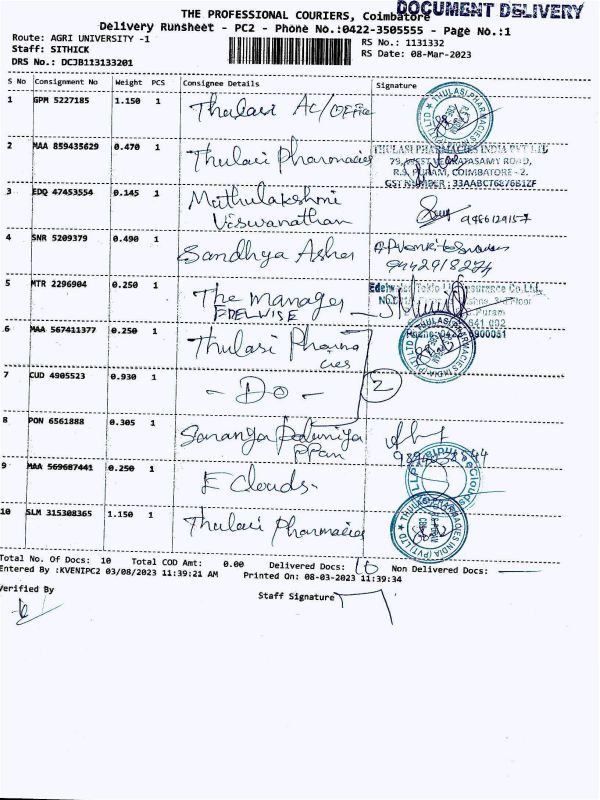 THE PROFESSIONAL COURIERS, Coimbatore
DOCUMENT DELIVERY
Delivery Runsheet - PC2 - Phone No.:0422-3505555 - Page No.:1
Route: AGRI UNIVERSITY -1
RS No.: 1131332
Staff: SITHICK
RS Date: 08-Mar-2023
DRS No.: DCJB113133201
S No Consignment No Weight PCS Consignee Details Signature
1 GPM 5227185 1.150 1 Thulasi AC/Office
2 MAA 859435629 0.470 1 Thulasi Pharmacies
THULASI PHARMACIES INDIA PVT LTD
79, WEST VENKATASAMY ROAD,
R.S. PURAM, COIMBATORE - 2.
3 EDQ 47453554 0.145 1 Muthulakshmi
Viswanathan
4 SNR 5209379 0.490 1 Sandhya Asher
9442918274
5 MTR 2296904 0.250 1 The Manager
EDELWISE
6 MAA 567411377 0.250 1 Thulasi Pharma
cies
7 CUD 4905523 0.930 1 - Do - 2
8 PON 6561888 0.305 1
9 MAA 569687441 0.250 1 E Clouds.
10 SLM 315308365 1.150 1 Thulasi Pharmacies
Total No. Of Docs: 10 Total COD Amt: 0.00 Delivered Docs: 10 Non Delivered Docs:
Entered By :KVENIPC2 03/08/2023 11:39:21 AM Printed On: 08-03-2023 11:39:34
Verified By
Staff Signature